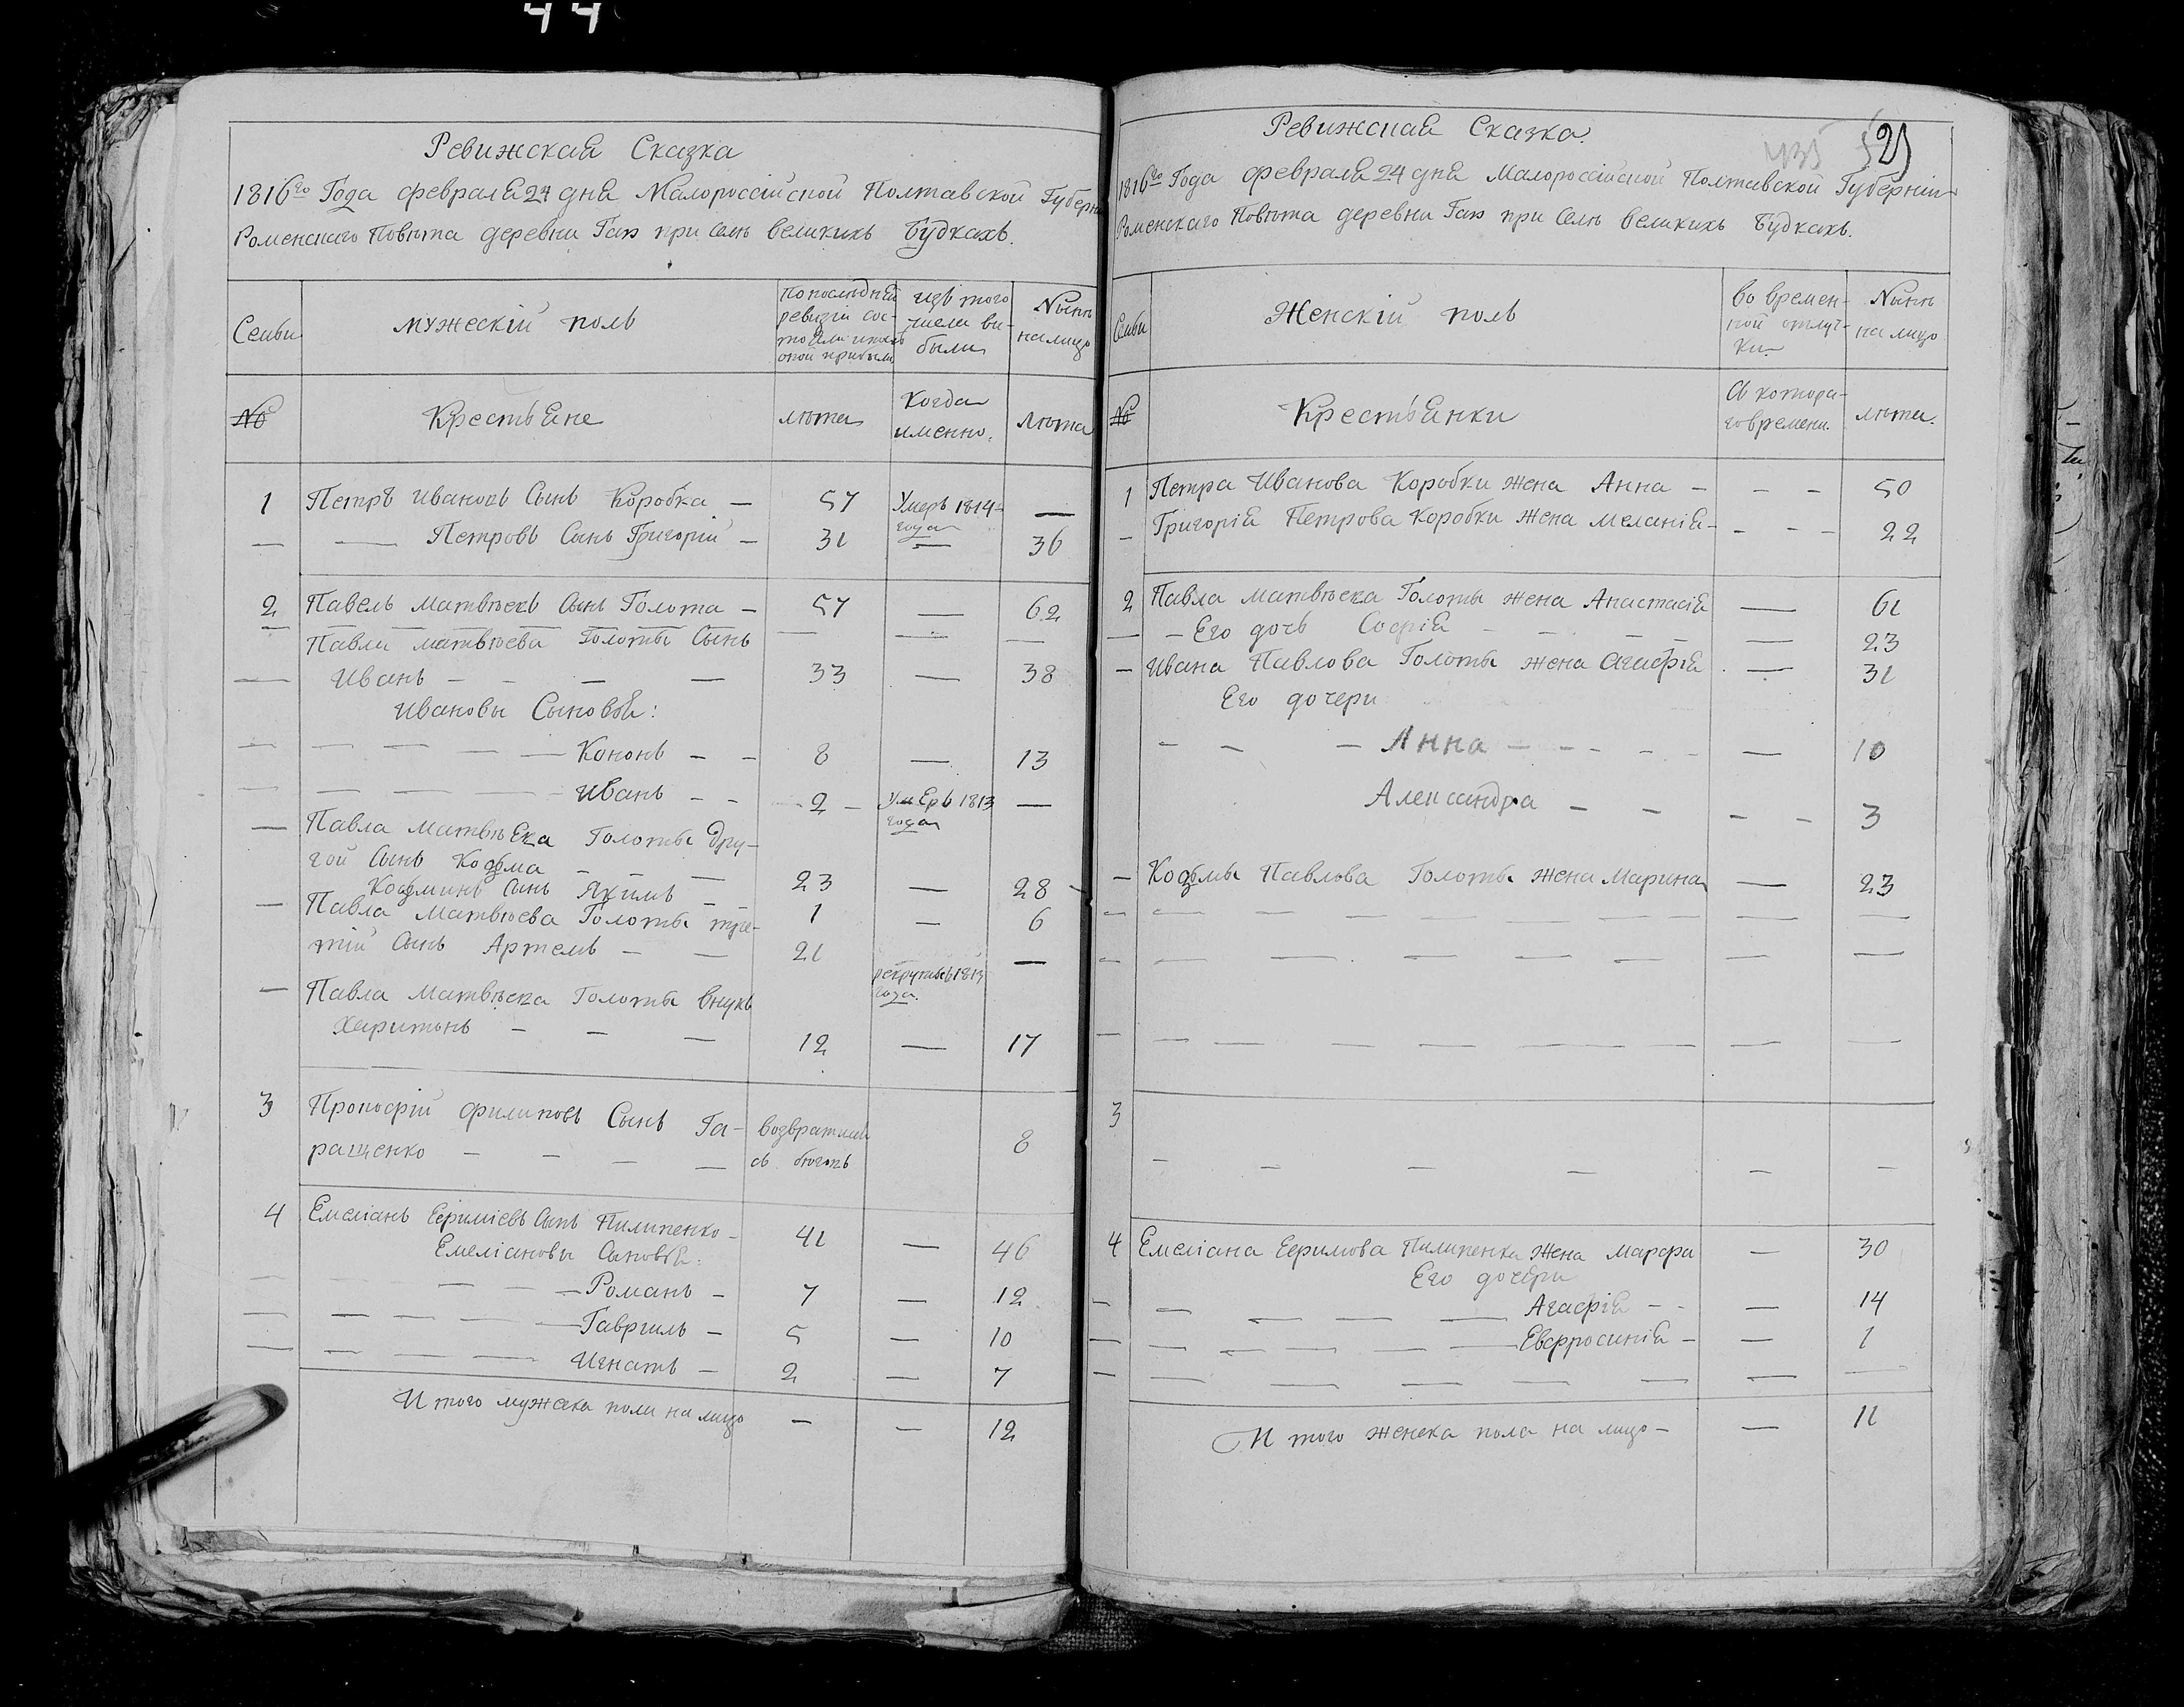 44
Ревижская Сказка
1816го Года февраля 24 дня Малороссійской Полтавской Губерн
Роменскаго Повѣта деревни Гаѣ при Селѣ великихъ Будкахъ.
Семьи
мужескій полъ
По последней ревизіи сос-
изъ того числа вы-были
Нынѣ на лицо
№
Крестьяне
лѣта
Когда именно.
лѣта
1 Петръ Ивановъ Сынъ Коробка — 57 Умеръ 1814 года —
— — Петровъ Сынъ Григорій — 31 — 36
2 Павелъ Матвѣевъ Сынъ Голота — 57 — 62
Павла Матвѣева Голоты Сынъ
— Иванъ — — — — 33 — 38
Ивановы Сыновья:
— — — — — Кононъ — — 8 — 13
— — — — — Иванъ — — 2 — Умеръ 1813 года —
— Павла Матвѣева Голоты дру-
гой Сынъ Козьма — — — 23 — 28
Козьминъ Сынъ Якимъ — — 1 — 6
— Павла Матвѣева Голоты тре-
тій Сынъ Артемъ — — 21 1813 года. —
— Павла Матвѣева Голоты внукъ
Харитонъ — — — 12 — 17
3 Прокофій Филиповъ Сынъ Га-
ращенко — — — — возвратился съ бѣговъ 8
4 Емеліанъ Ефимиевъ Сынъ Пилипенко — 41 — 46
Емеліановы Сыновья:
— — — — Романъ — 7 — 12
— — — — — Гавриилъ — 5 — 10
— — — — — Игнатъ — 2 — 7
Итого мужска пола на лицо — — 12
Ревижская Сказка.
435
1816го Года февраля 24 дня Малороссійской Полтавской Губерніи
Роменскаго Повѣта деревни Гаѣ при Селѣ великихъ Будкахъ.
Семьи
Женскій полъ
Во времен-ной отлуч-ки
Нынѣ на лицо
№
Крестьянки
Съ котора-го времени.
лѣта.
1 Петра Иванова Коробки жена Анна — — — 50
— Григорія Петрова Коробки жена Меланія — — — 22
2 Павла Матвѣева Голоты жена Анастасія — 61
— — Его дочь Софія — — — — — 23
— Ивана Павлова Голоты жена Агафія — 31
Его дочери
— — — Анна — — — — — 10
Александра — — — — 3
— Козьмы Павлова Голоты жена Марина — 23
3 — — — — — —
4 Емеліана Ефимова Пилипенка жена Марфа — 30
Его дочери
— — — — — Агафія — — — 14
— — — — — — Евфросинія — — 1
Итого женска пола на лицо — — 11